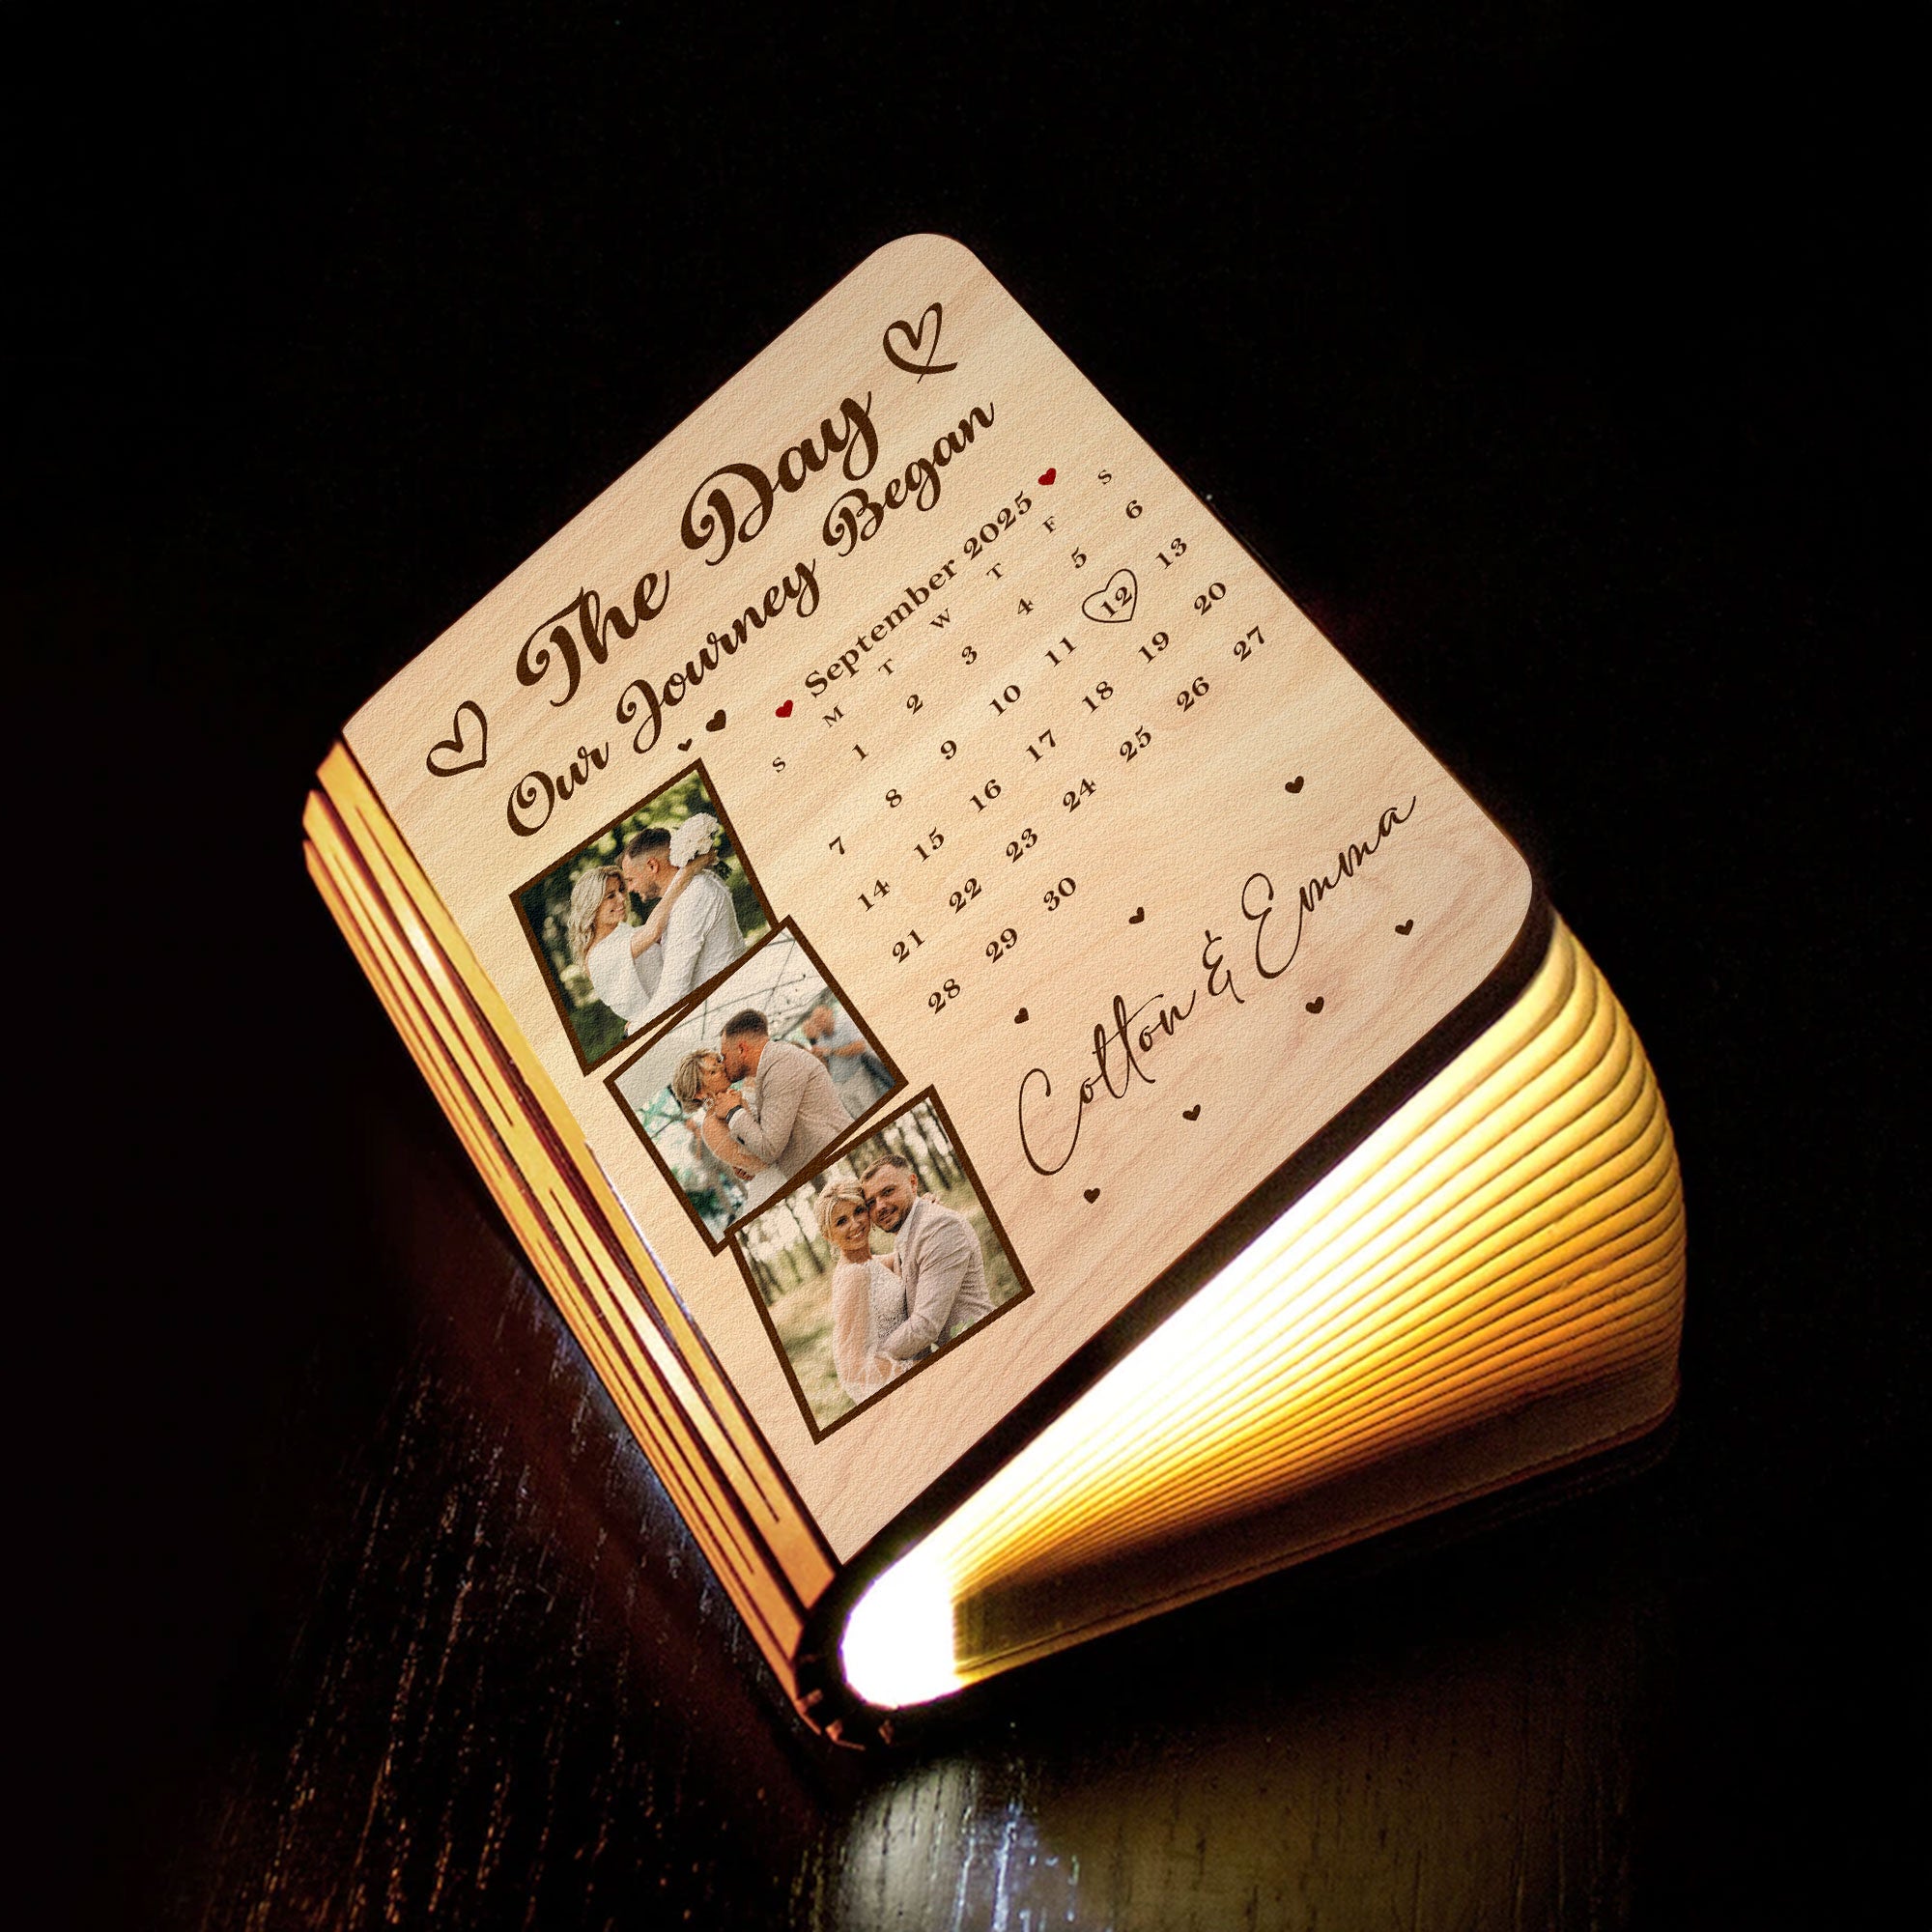 The Day
Our Journey Began
September 2025
S M T W T F S
1 2 3 4 5 6
7 8 9 10 11 12 13
14 15 16 17 18 19 20
21 22 23 24 25 26 27
28 29 30
Colton & Emma